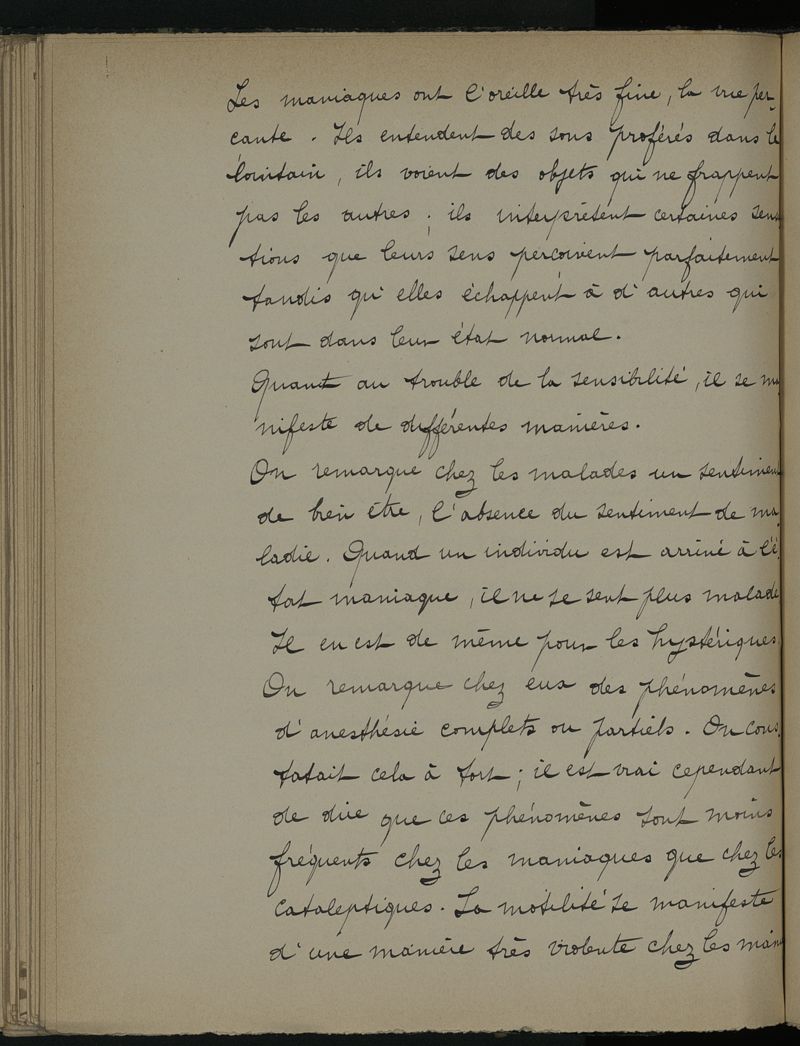 Les maniaques ont l'oreille très fine, la vue per-
cante. Ils entendent des sons proférés dans le
lointain, ils voient des objets qui ne frappent
pas les autres; ils interprètent certaines sensa
tions que leurs sens percoivent parfaitement
tandis qu'elles échappent à d'autres qui
sont dans leur état normal.
Quant au trouble de la sensibilité, il se ma
nifeste de différentes manières.
On remarque chez les malades un sentiment
de bien être, l'absence du sentiment de ma
ladie. Quand un individu est arrivé à l'é
tat maniaque, il ne se sent plus malade
Il en est de même pour les hystériques.
On remarque chez eux des phénomènes
d'anesthésie complets ou partiels. On cons
tatait cela à tort; il est vrai cependant
de dire que ces phénomènes sont moins
fréquents chez les maniaques que chez les
cataleptiques. La motilité se manifeste
d'une manière très violente chez les man